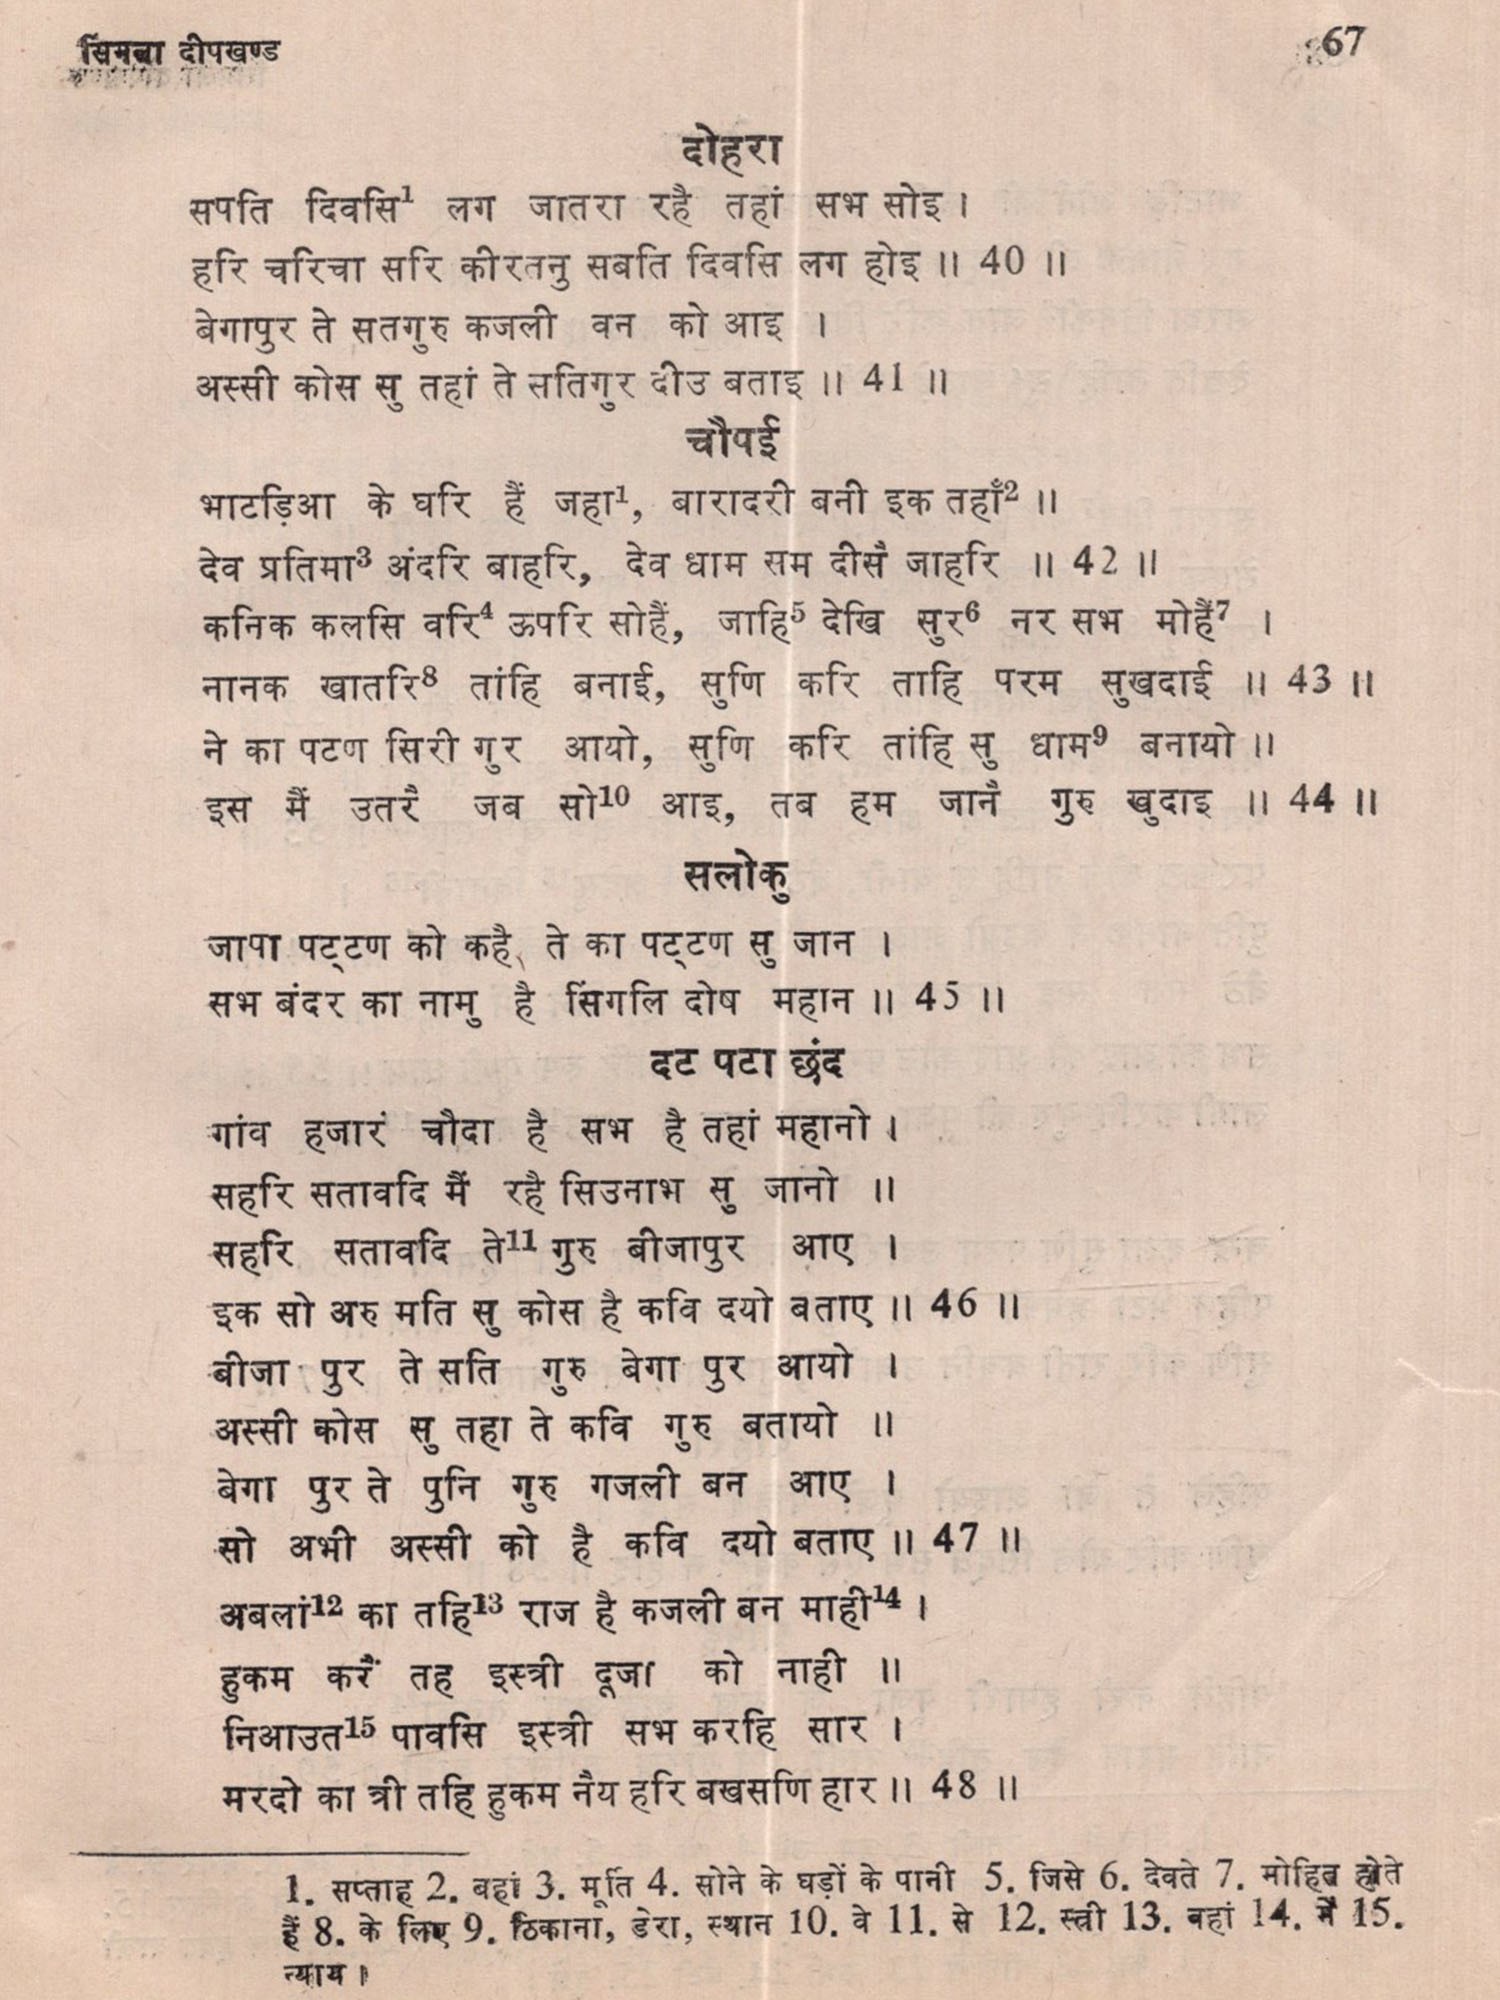 सिमला दीपखण्ड 67
दोहरा
सपति दिवसि1 लग जातरा रहै तहां सभ सोइ ।
हरि चरिचा सरि कीरतनु सबति दिवसि लग होइ ॥ 40 ॥
बेगापुर ते सतगुरु कजली वन को आइ ।
अस्सी कोस सु तहां ते सतिगुर दीउ बताइ ॥ 41 ॥
चौपई
भाटड़िआ के घरि हैं जहा1, बारादरी बनी इक तहाँ2 ॥
देव प्रतिमा3 अंदरि बाहरि, देव धाम सम दीसै जाहरि ॥ 42 ॥
कनिक कलसि वरि4 ऊपरि सोहैं, जाहि5 देखि सुर6 नर सभ मोहैं7 ।
नानक खातरि8 तांहि बनाई, सुणि करि ताहि परम सुखदाई ॥ 43 ॥
ने का पटण सिरी गुर आयो, सुणि करि तांहि सु धाम9 बनायो ॥
इस मैं उतरै जब सो10 आइ, तब हम जानै गुरु खुदाइ ॥ 44 ॥
सलोकु
जापा पट्टण को कहै, ते का पट्टण सु जान ।
सभ बंदर का नामु है सिंगलि दोष महान ॥ 45 ॥
दट पटा छंद
गांव हजारं चौदा है सभ है तहां महानो ।
सहरि सतावदि मैं रहै सिउनाभ सु जानो ॥
सहरि सतावदि ते11 गुरु बीजापुर आए ।
इक सो अरु मति सु कोस है कवि दयो बताए ॥ 46 ॥
बीजा पुर ते सति गुरु बेगा पुर आयो ।
अस्सी कोस सु तहा ते कवि गुरु बतायो ॥
बेगा पुर ते पुनि गुरु गजली बन आए ।
सो अभी अस्सी को है कवि दयो बताए ॥ 47 ॥
अबलां12 का तहि13 राज है कजली बन माही14 ।
हुकम करैं तह इस्त्री दूजा को नाही ॥
निआउत15 पावसि इस्त्री सभ करहि सार ।
मरदो का त्री तहि हुकम नैय हरि बखसणि हार ॥ 48 ॥
1. सप्ताह 2. वहां 3. मूर्ति 4. सोने के घड़ों के पानी 5. जिसे 6. देवते 7. मोहित होते
हैं 8. के लिए 9. ठिकाना, डेरा, स्थान 10. वे 11. से 12. स्त्री 13. वहां 14. में 15.
न्याय ।